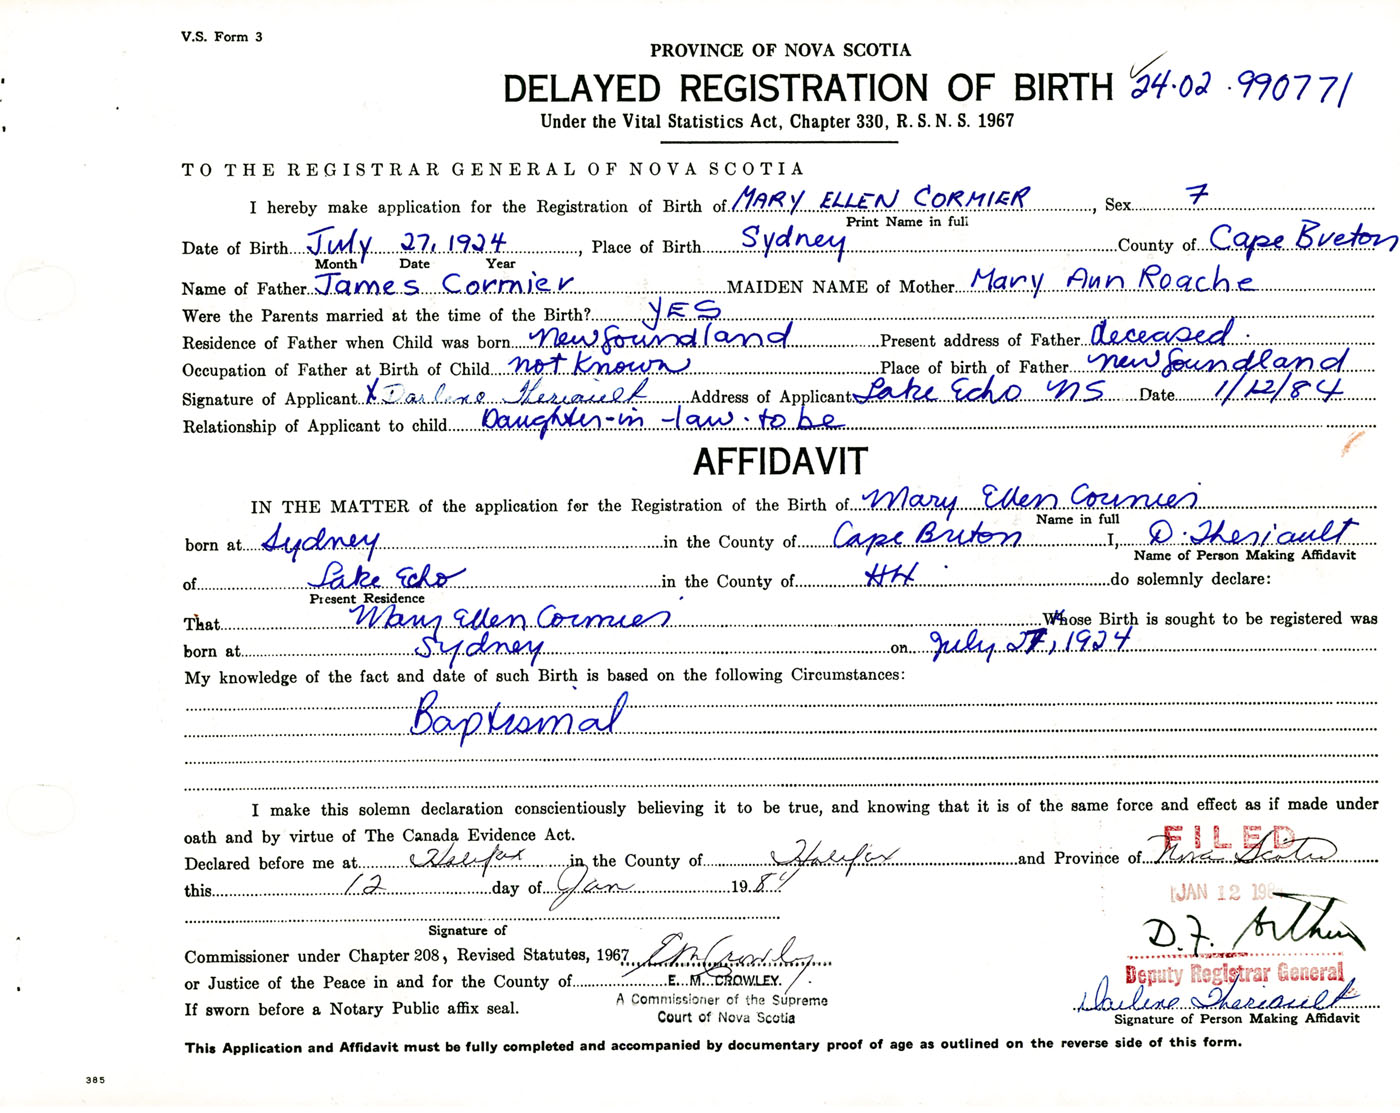 V.S. Form 3
PROVINCE OF NOVA SCOTIA
DELAYED REGISTRATION OF BIRTH 24·02·990771
Under the Vital Statistics Act, Chapter 330, R.S.N.S. 1967
TO THE REGISTRAR GENERAL OF NOVA SCOTIA
I hereby make application for the Registration of Birth of MARY ELLEN CORMIER, Sex 7
Print Name in full
Date of Birth July 27, 1924, Place of Birth Sydney County of Cape Breton
Month Date Year
Name of Father James Cormier MAIDEN NAME of Mother Mary Ann Roache
Were the Parents married at the time of the Birth? YES
Residence of Father when Child was born Newfoundland Present address of Father deceased.
Occupation of Father at Birth of Child not Known Place of birth of Father Newfoundland
Signature of Applicant X Darlene Theriault Address of Applicant Lake Echo NS Date 1/12/84
Relationship of Applicant to child Daughter-in-law-to be
AFFIDAVIT
IN THE MATTER of the application for the Registration of the Birth of Mary Ellen Cormier
Name in full
born at Sydney in the County of Cape Breton I, D. Theriault
Name of Person Making Affidavit
of Lake Echo in the County of HH do solemnly declare:
Present Residence
That Mary Ellen Cormier Whose Birth is sought to be registered was
born at Sydney on July 27, 1924
My knowledge of the fact and date of such Birth is based on the following Circumstances:
Baptismal
I make this solemn declaration conscientiously believing it to be true, and knowing that it is of the same force and effect as if made under
oath and by virtue of The Canada Evidence Act.
FILED
Declared before me at Halifax in the County of Halifax and Province of Nova Scotia
this 12 day of Jan 1984
JAN 12 198
Signature of
D.F. Arthur
Commissioner under Chapter 208, Revised Statutes, 1967 E M Crowley
Deputy Registrar General
or Justice of the Peace in and for the County of E. M. CROWLEY
A Commissioner of the Supreme
Court of Nova Scotia
Darlene Theriault
If sworn before a Notary Public affix seal.
Signature of Person Making Affidavit
This Application and Affidavit must be fully completed and accompanied by documentary proof of age as outlined on the reverse side of this form.
385